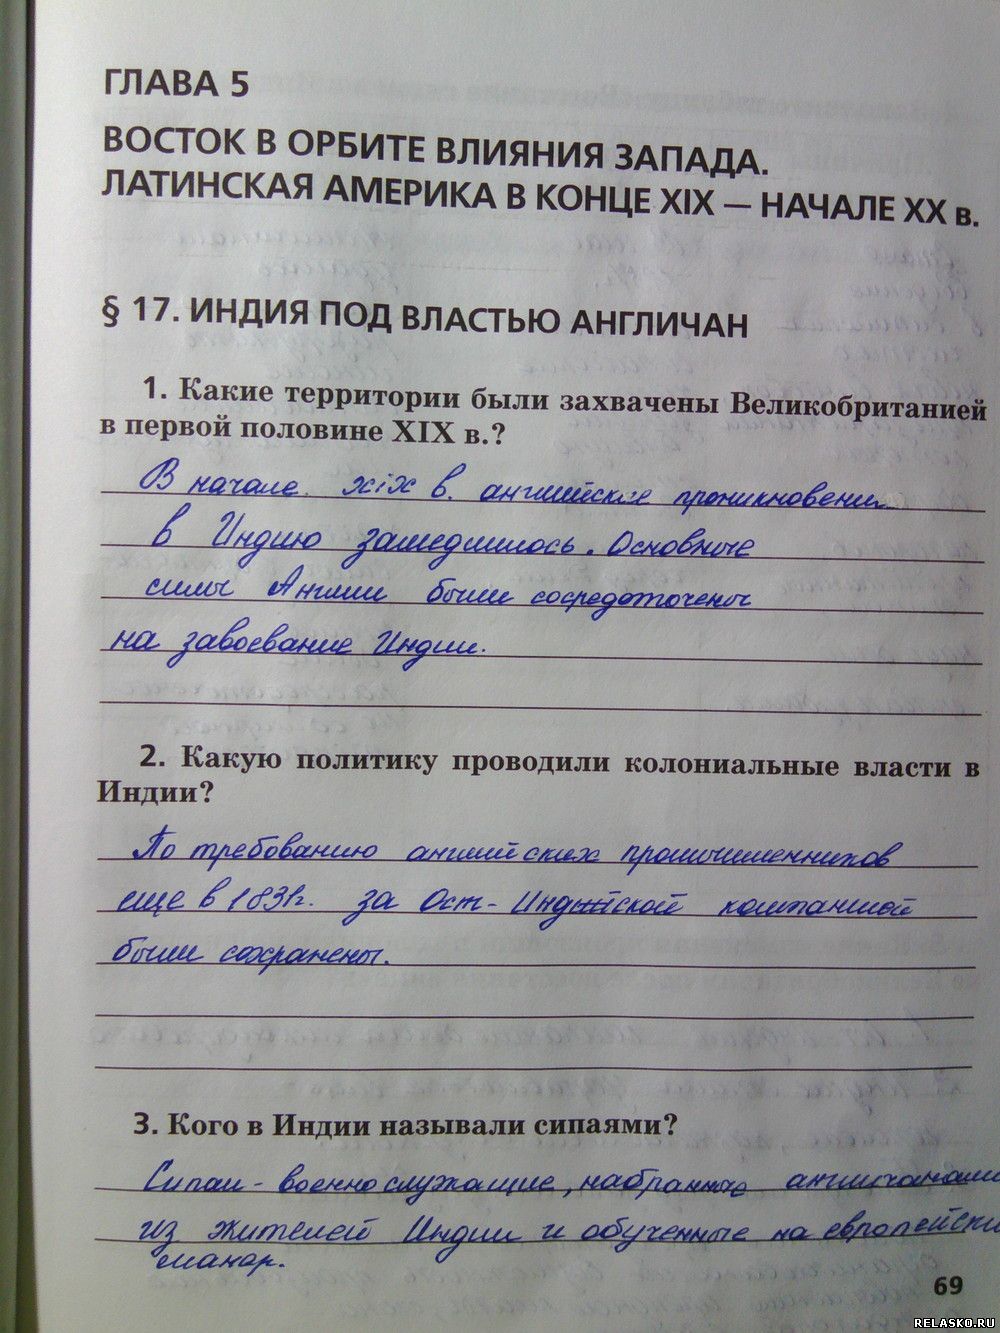 ГЛАВА 5
ВОСТОК В ОРБИТЕ ВЛИЯНИЯ ЗАПАДА.
ЛАТИНСКАЯ АМЕРИКА В КОНЦЕ XIX — НАЧАЛЕ XX в.
§ 17. ИНДИЯ ПОД ВЛАСТЬЮ АНГЛИЧАН
1. Какие территории были захвачены Великобританией
в первой половине XIX в.?
В начале XIX в. английское проникновени
в Индию замедлилось. Основные
силы Англии были сосредоточены
на завоевание Индии.
2. Какую политику проводили колониальные власти в
Индии?
По требованию английских промышленников
еще в 1831г. за Ост-Индийской компанией
были сохранены.
3. Кого в Индии называли сипаями?
Сипаи - военнослужащие, набранные англичанами
из жителей Индии и обученные на европейски
манар.
69
RELASKO.RU